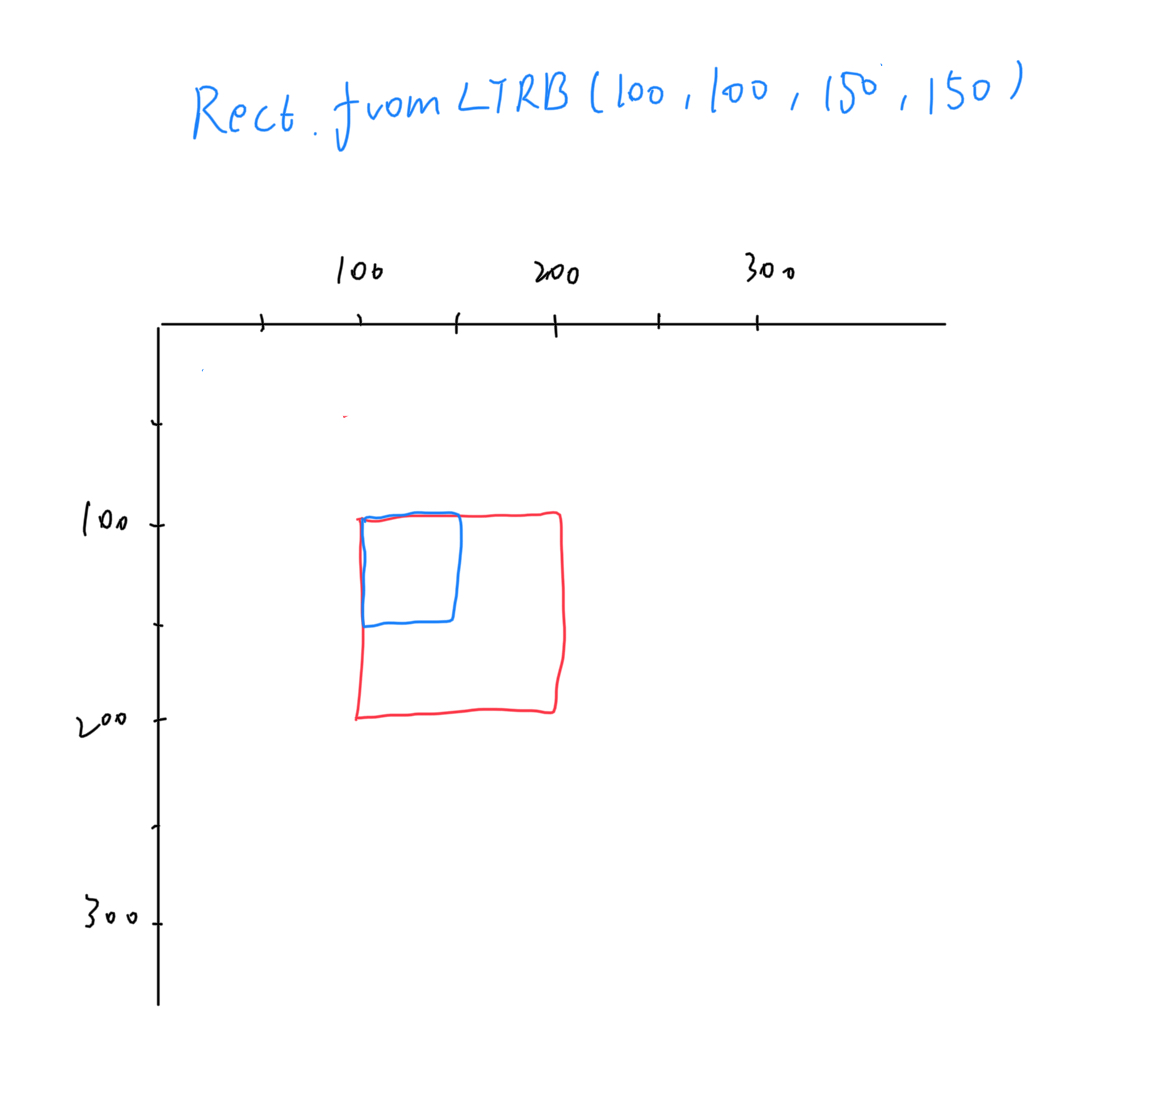 Rect.fromLTRB(100,100,150,150)
100 200 300
100
200
300